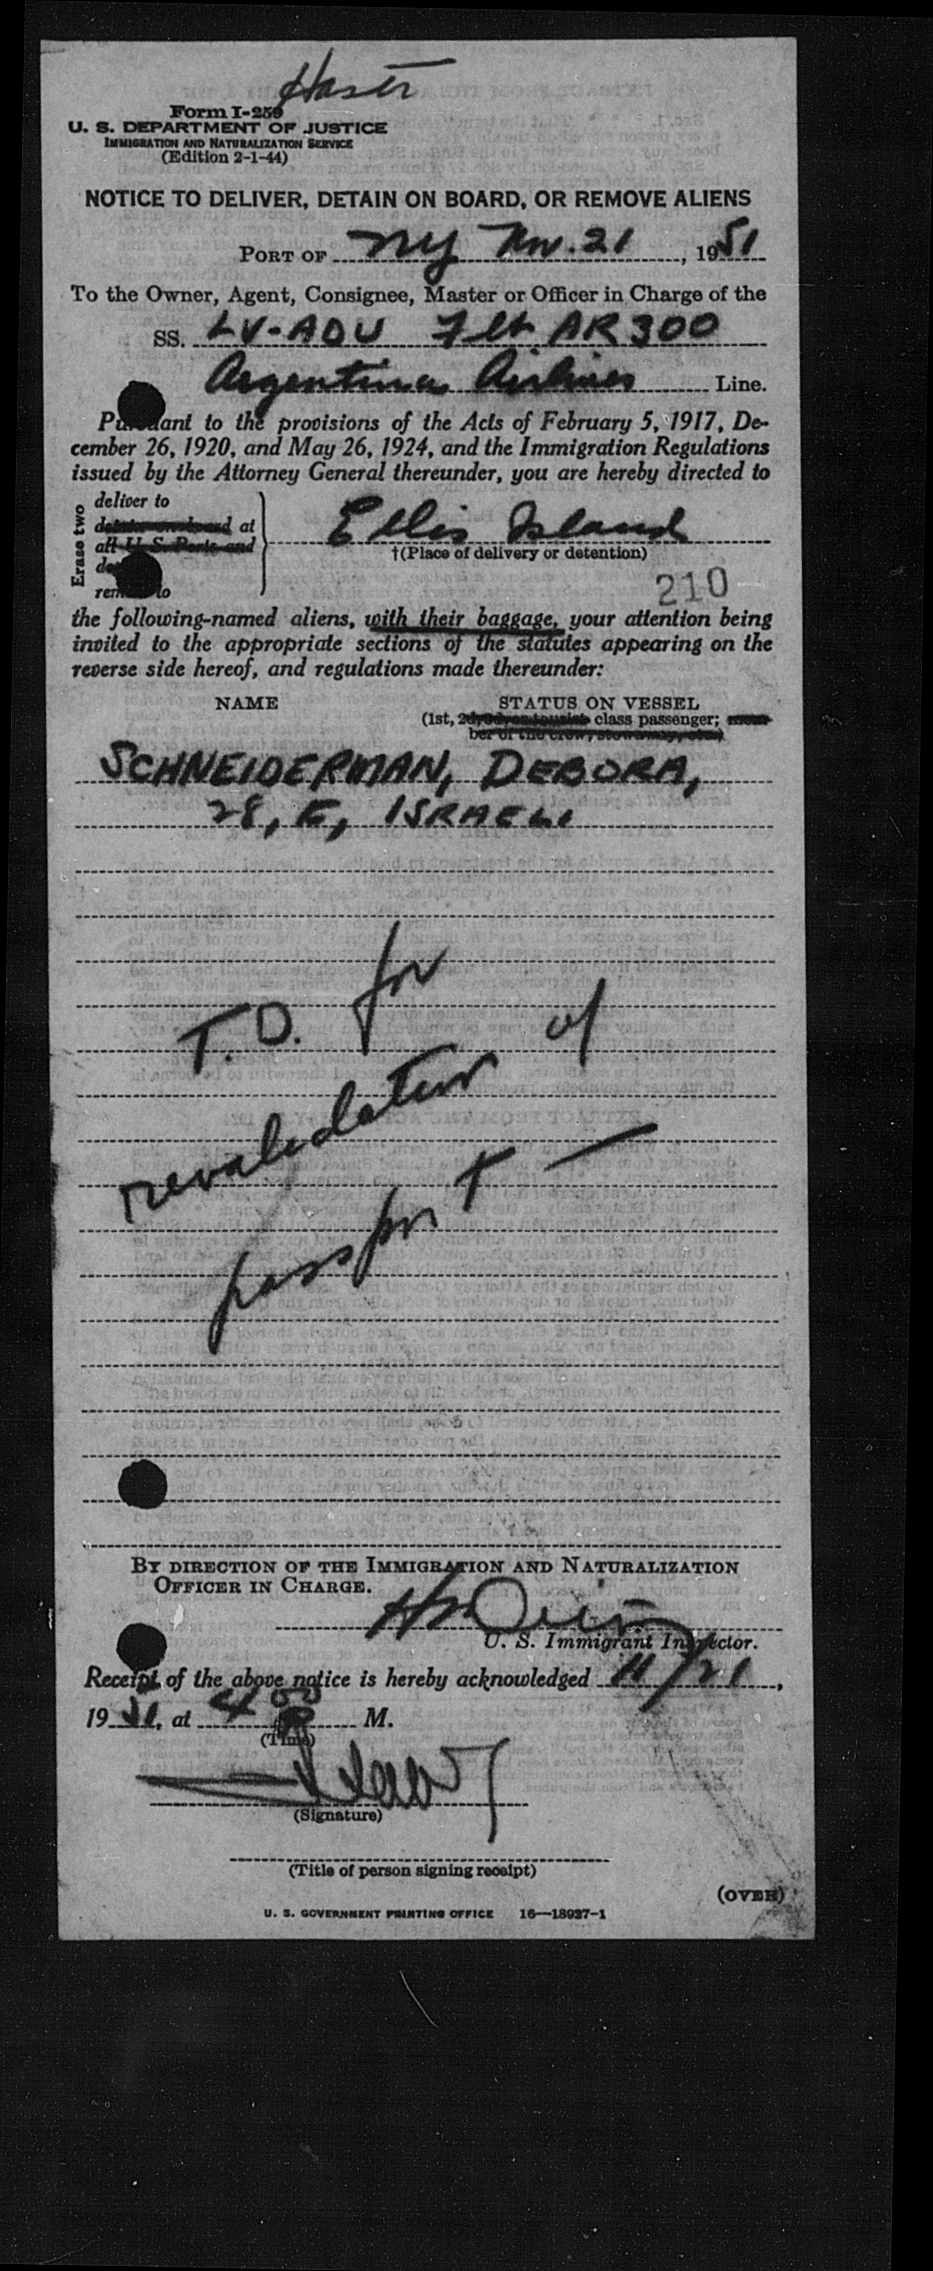 Form I-259
U. S. DEPARTMENT OF JUSTICE
IMMIGRATION AND NATURALIZATION SERVICE
(Edition 2-1-44)
NOTICE TO DELIVER, DETAIN ON BOARD, OR REMOVE ALIENS
PORT OF NY Nov. 21, 1951
To the Owner, Agent, Consignee, Master or Officer in Charge of the
SS. LV-ADU Flt AR 300
Argentina Airlines Line.
Pursuant to the provisions of the Acts of February 5, 1917, De-
cember 26, 1920, and May 26, 1924, and the Immigration Regulations
issued by the Attorney General thereunder, you are hereby directed to
Erase two
deliver to
detain on board at
all U. S. Ports and
remove to
Ellis Island
†(Place of delivery or detention)
210
the following-named aliens, with their baggage, your attention being
invited to the appropriate sections of the statutes appearing on the
reverse side hereof, and regulations made thereunder:
NAME STATUS ON VESSEL
(1st, 2d, 3d, or tourist class passenger; mem-
ber of the crew, stowaway, etc.)
SCHNEIDERMAN, DEBORA,
28, F, ISRAELI
T.D. for
revalidation of
passport —
BY DIRECTION OF THE IMMIGRATION AND NATURALIZATION
OFFICER IN CHARGE.
U. S. Immigrant Inspector.
Receipt of the above notice is hereby acknowledged 11/21,
1951, at 4 00 P M.
(Time)
(Signature)
(Title of person signing receipt)
(OVER)
U. S. GOVERNMENT PRINTING OFFICE 16—18927-1